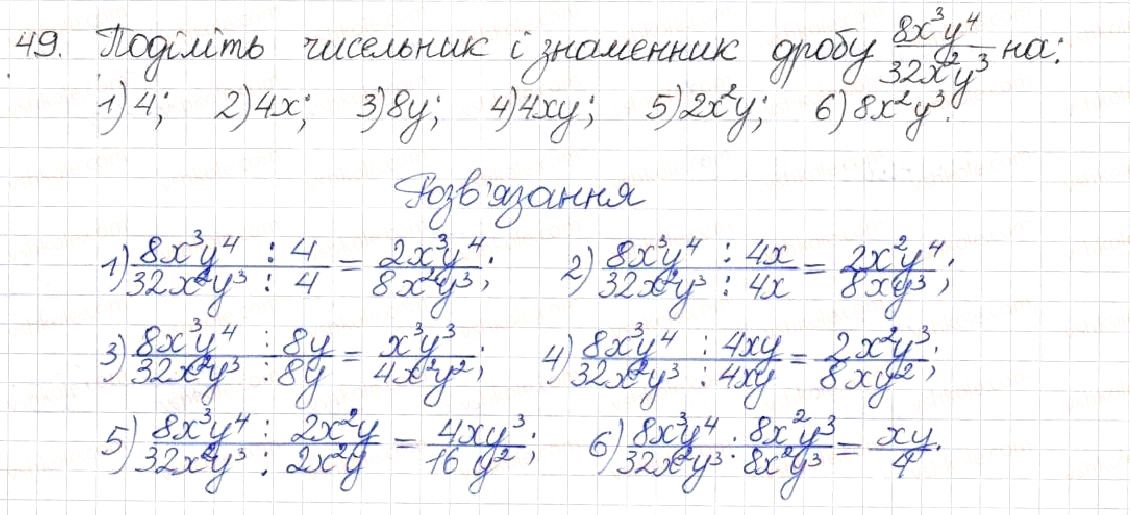 49. Поділіть чисельник і знаменник дробу 8x³y⁴/32x²y³ на:
1) 4; 2) 4x; 3) 8y; 4) 4xy; 5) 2x²y; 6) 8x²y³.
Розв'язання
1) 8x³y⁴ : 4 / 32x²y³ : 4 = 2x³y⁴/8x²y³; 2) 8x³y⁴ : 4x / 32x²y³ : 4x = 2x²y⁴/8xy³;
3) 8x³y⁴ : 8y / 32x²y³ : 8y = x³y³/4x²y²; 4) 8x³y⁴ : 4xy / 32x²y³ : 4xy = 2x²y³/8xy²;
5) 8x³y⁴ : 2x²y / 32x²y³ : 2x²y = 4xy³/16y²; 6) 8x³y⁴ : 8x²y³ / 32x²y³ : 8x²y³ = xy/4.